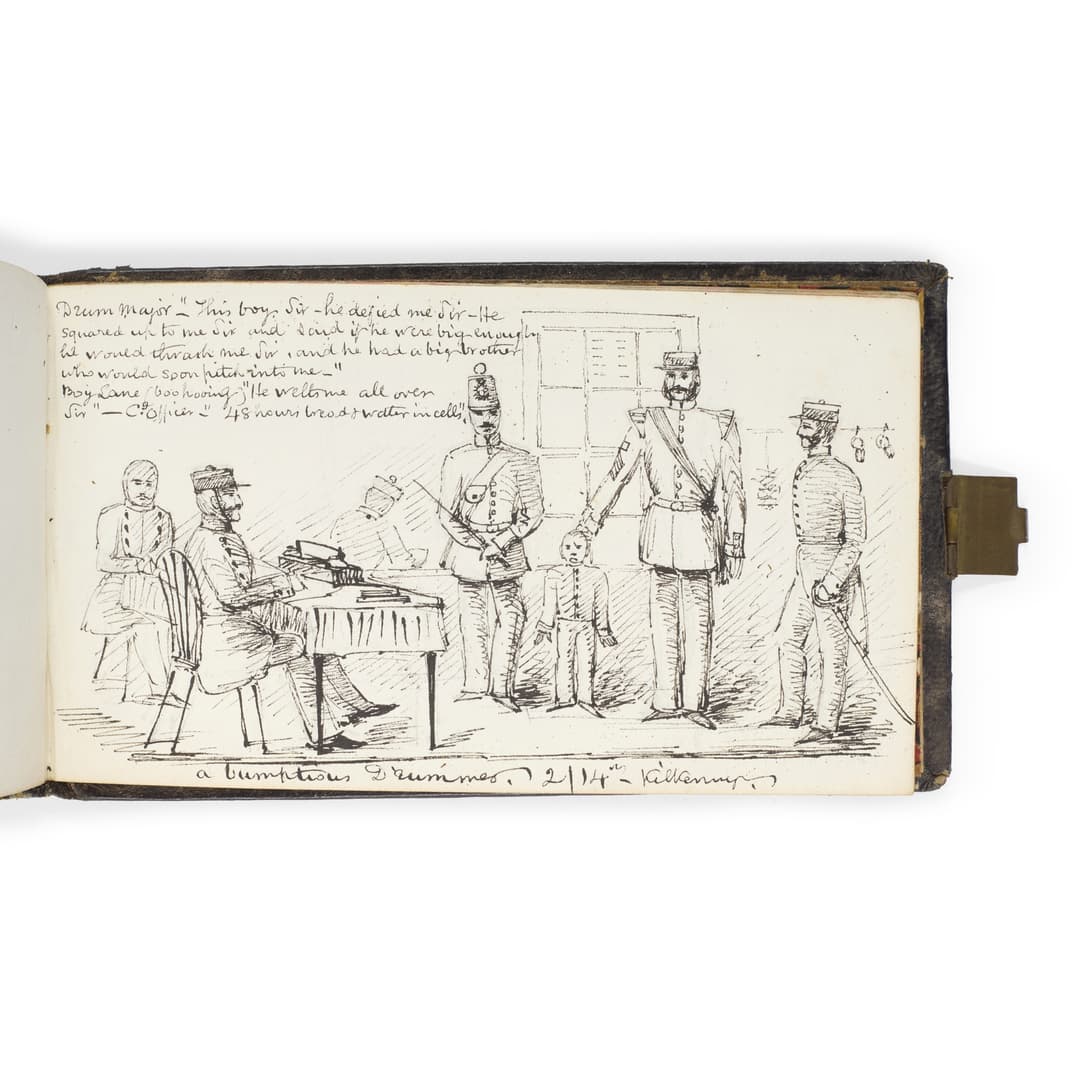 Drum Major "- This boy, Sir - he defied me Sir - He
squared up to me Sir and said if he were big enough
he would thrash me Sir, and he had a big brother
who would soon pitch into me - "
Boy Lane (boohooing) "He welts me all over
Sir" - Cg Officer - " 48 hours bread & water in cells".
a bumptious Drummer. 2/14th - Kilkenny.